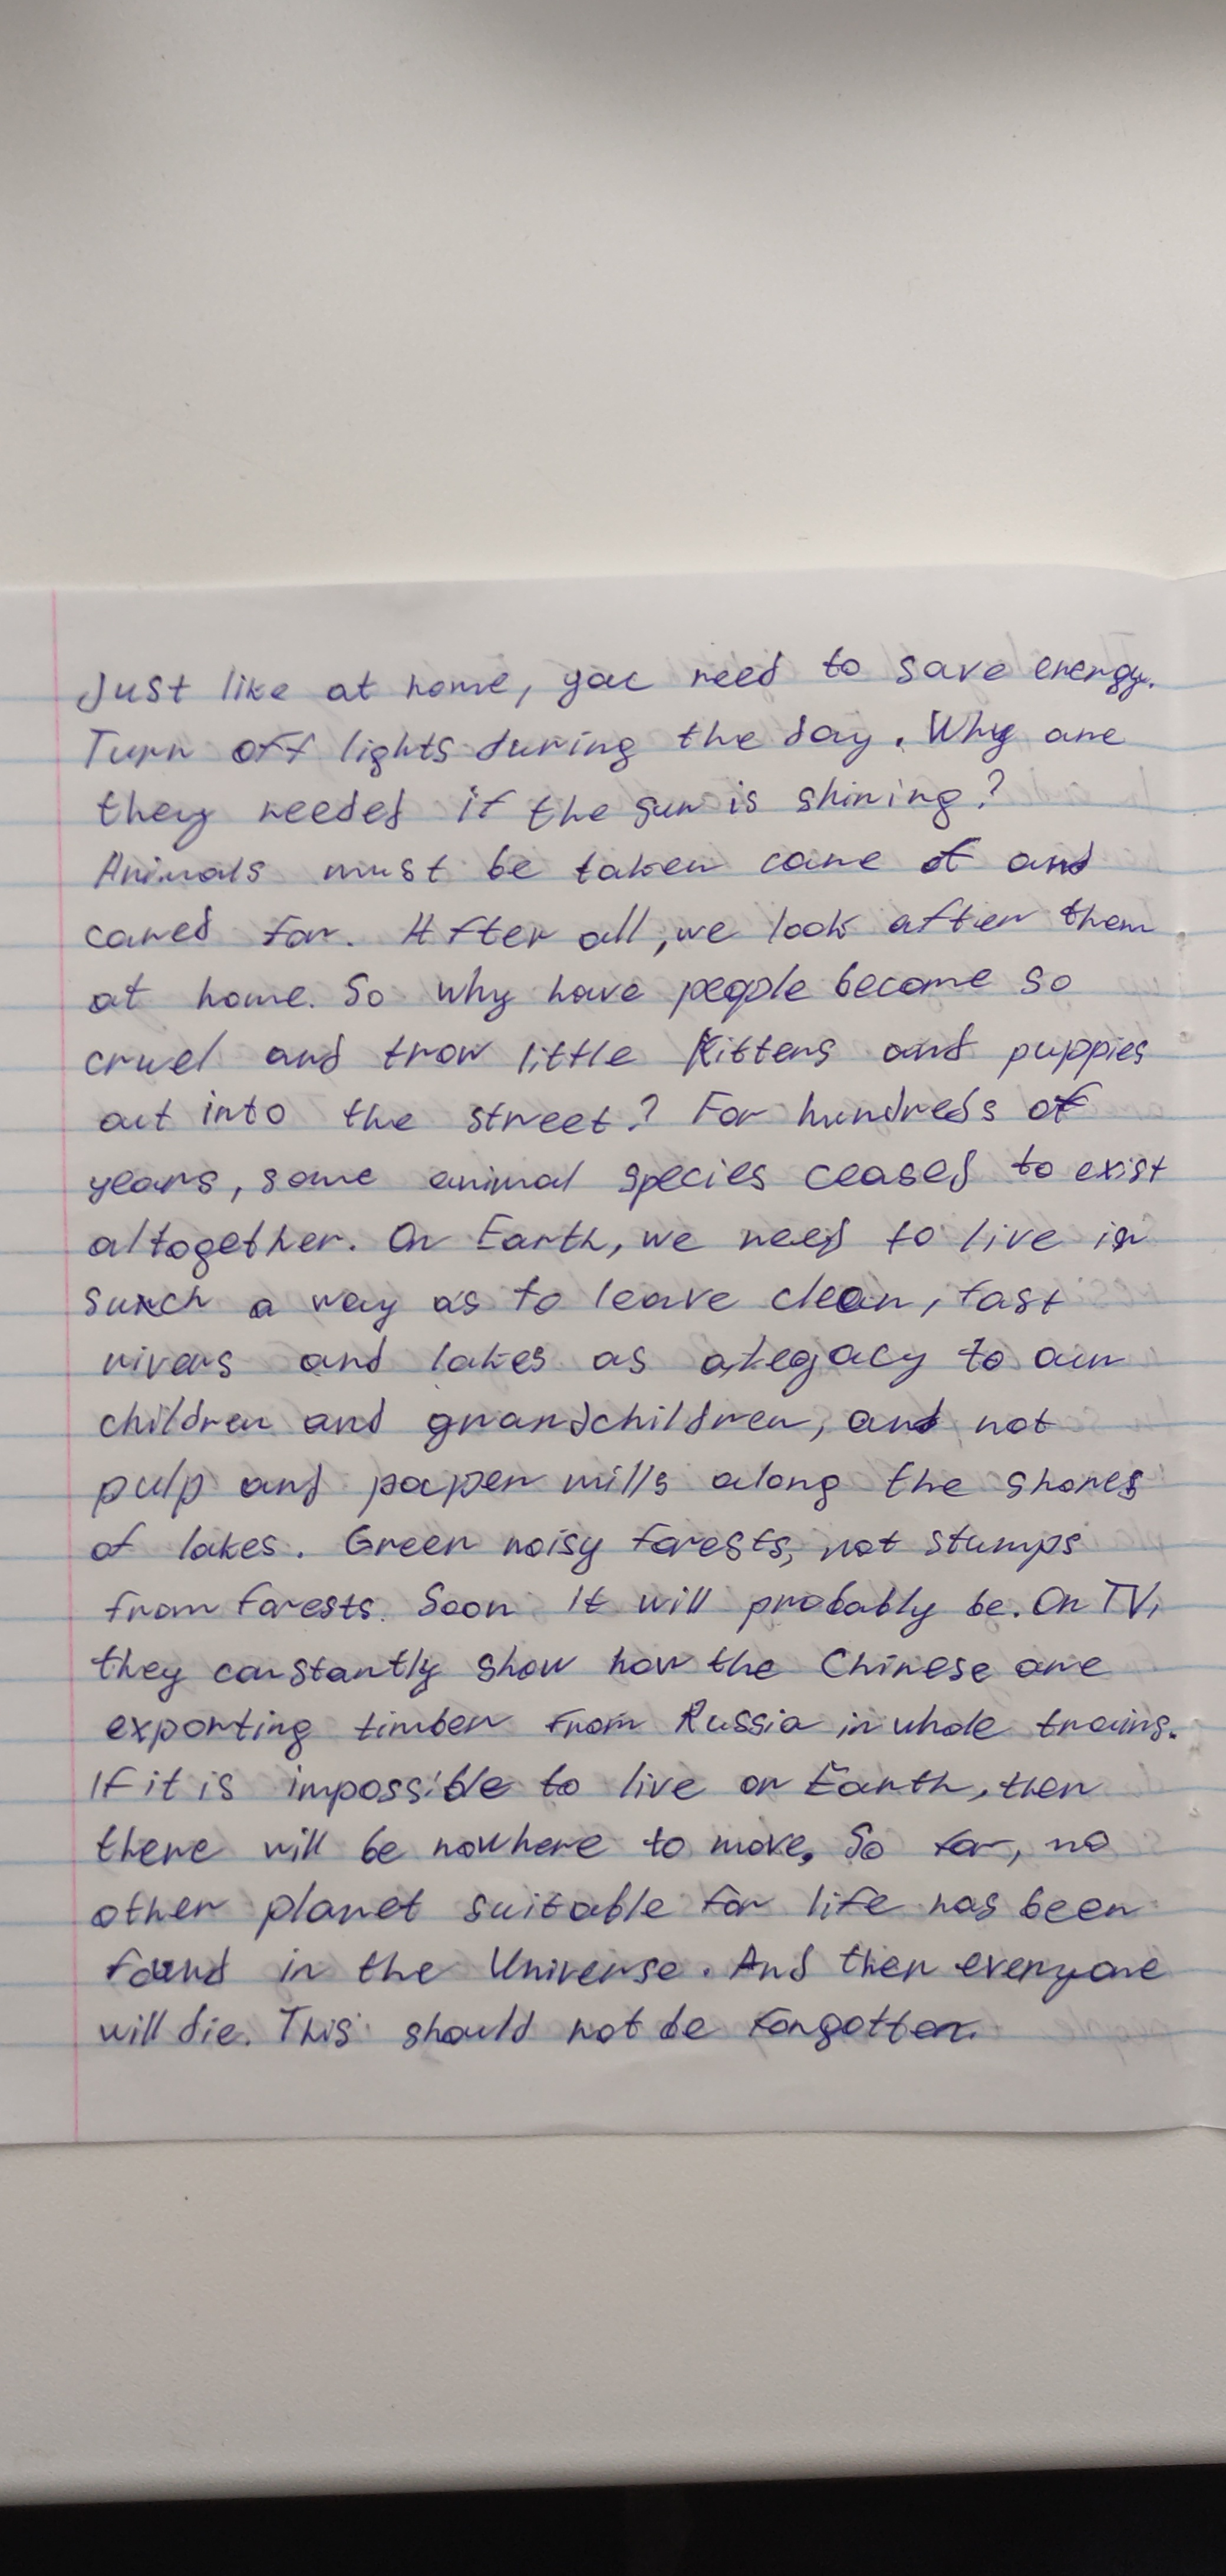 Just like at home, you need to save energy.
Turn off lights during the day. Why are
they needed if the sun is shining?
Animals must be taken care of and
cared for. After all, we look after them
at home. So why have people become so
cruel and trow little kittens and puppies
out into the street? For hundreds of
years, some animal species ceased to exist
altogether. On Earth, we need to live in
such a way as to leave clean, fast
rivers and lakes as a legacy to our
children and grandchildren, and not
pulp and paper mills along the shores
of lakes. Green noisy forests, not stumps
from forests. Soon it will probably be. On TV,
they constantly show how the Chinese are
exporting timber from Russia in whole trains.
If it is impossible to live on Earth, then
there will be nowhere to move. So far, no
other planet suitable for life has been
found in the Universe. And then everyone
will die. This should not be forgotten.